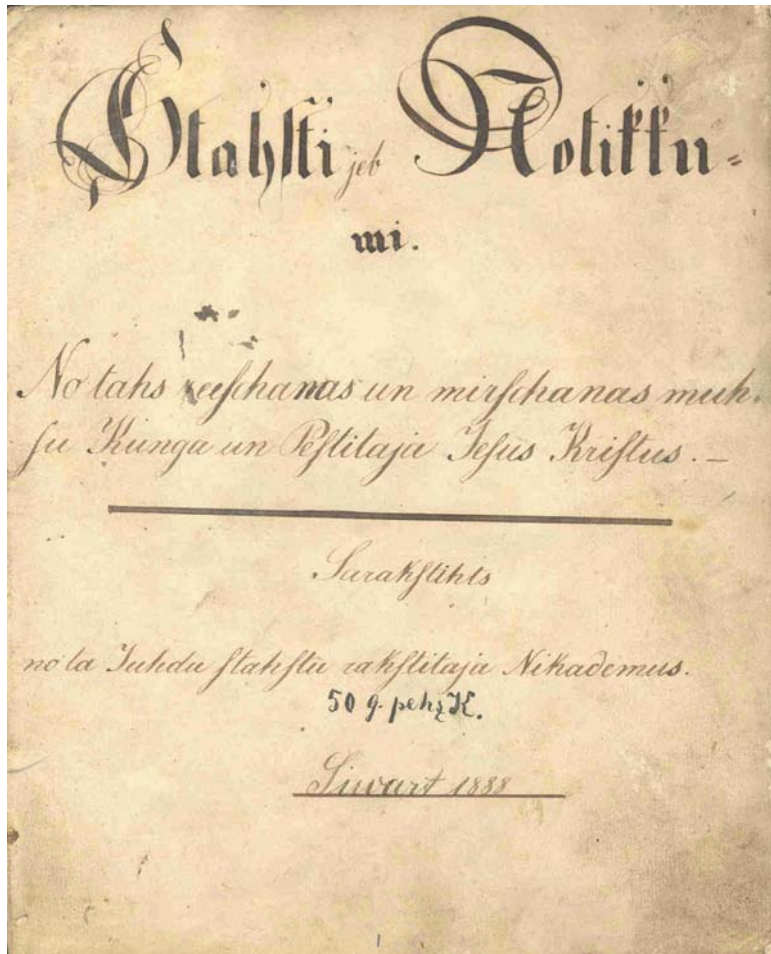 Stahſti jeb Notikku-
mi.
No tahs zeeſchanas un mirſchanas muh-
ſu Kunga un Peſtitaja Jeſus Kriſtus. —
Sarakſtihts
no ta Juhdu ſtahſtu rakſtitaja Nikademus.
50 g. pehz K.
1888